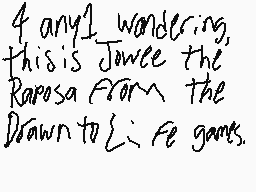 4 any1 wondering,
this is Jowee the
Raposa from the
Drawn to Life games.